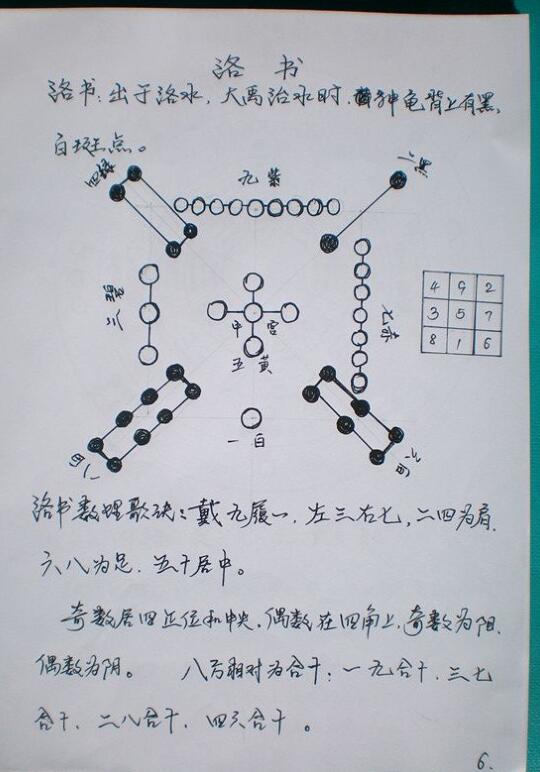 洛书
洛书:出于洛水,大禹治水时,神龟背上有黑,
白斑点。
四绿
九紫
二黑
三碧
中宫
五黄
七赤
4 9 2
3 5 7
8 1 6
八白
一白
六白
洛书数理歌诀:戴九履一,左三右七,二四为肩,
六八为足,五十居中。
奇数居四正位和中央,偶数在四角上,奇数为阳,
偶数为阴。 八方相对为合十:一九合十,三七
合十,二八合十,四六合十。
6.